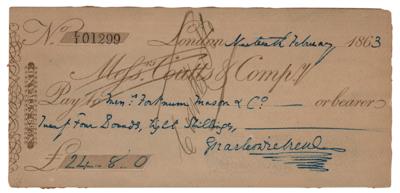 No. E/I 01299 London Nineteenth February 1863
Messrs. Coutts & Compy.
Pay to Messrs. Fortnum Mason & Co. or bearer
Twenty Four Pounds, Eight Shillings,
£ 24-8.0